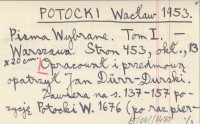 POTOCKI Wacław 1953.
Pisma Wybrane. Tom I. —
Warszawa. Stron 453, okł., 13
×20 cm.
Opracował i przedmową
opatrzył Jan Dürr-Durski.
Zawiera na s. 137-157 po-
zycję Potocki W. 1676 (po raz pier-